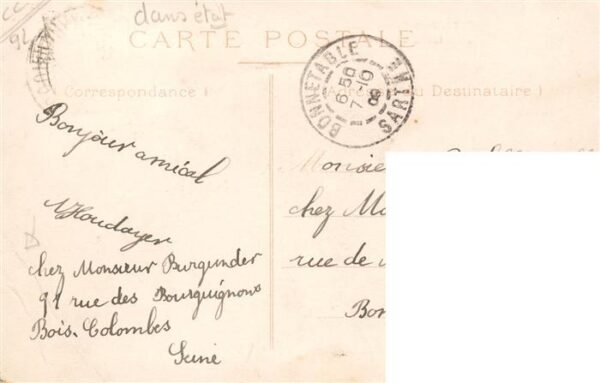 CC
94
dans état
CARTE POSTALE
Correspondance
Adresse du Destinataire
BONNETABLE
6 50
7 - 10
09
SARTHE
Bonjour amical
Houdayer
chez Monsieur Burgunder
91 rue des Bourguignons
Bois-Colombes
Seine
Monsie
chez Mo
rue de
Bon